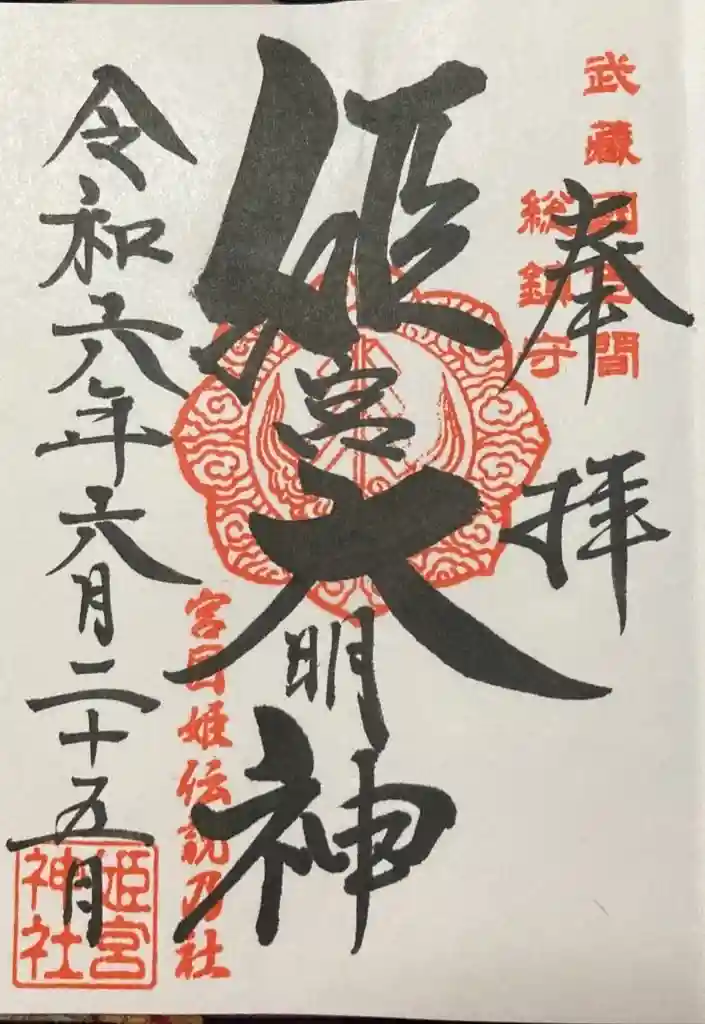 武藏國百間
総鎮守
奉拝
姫宮大明神
宮目姫伝説乃社
令和六年六月二十五月
姫宮
神社